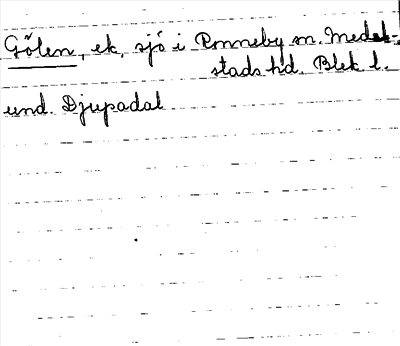 Gölen, ek. sjö i Ronneby sn. Medel-
stads hd. Blek l.
und. Djupadal